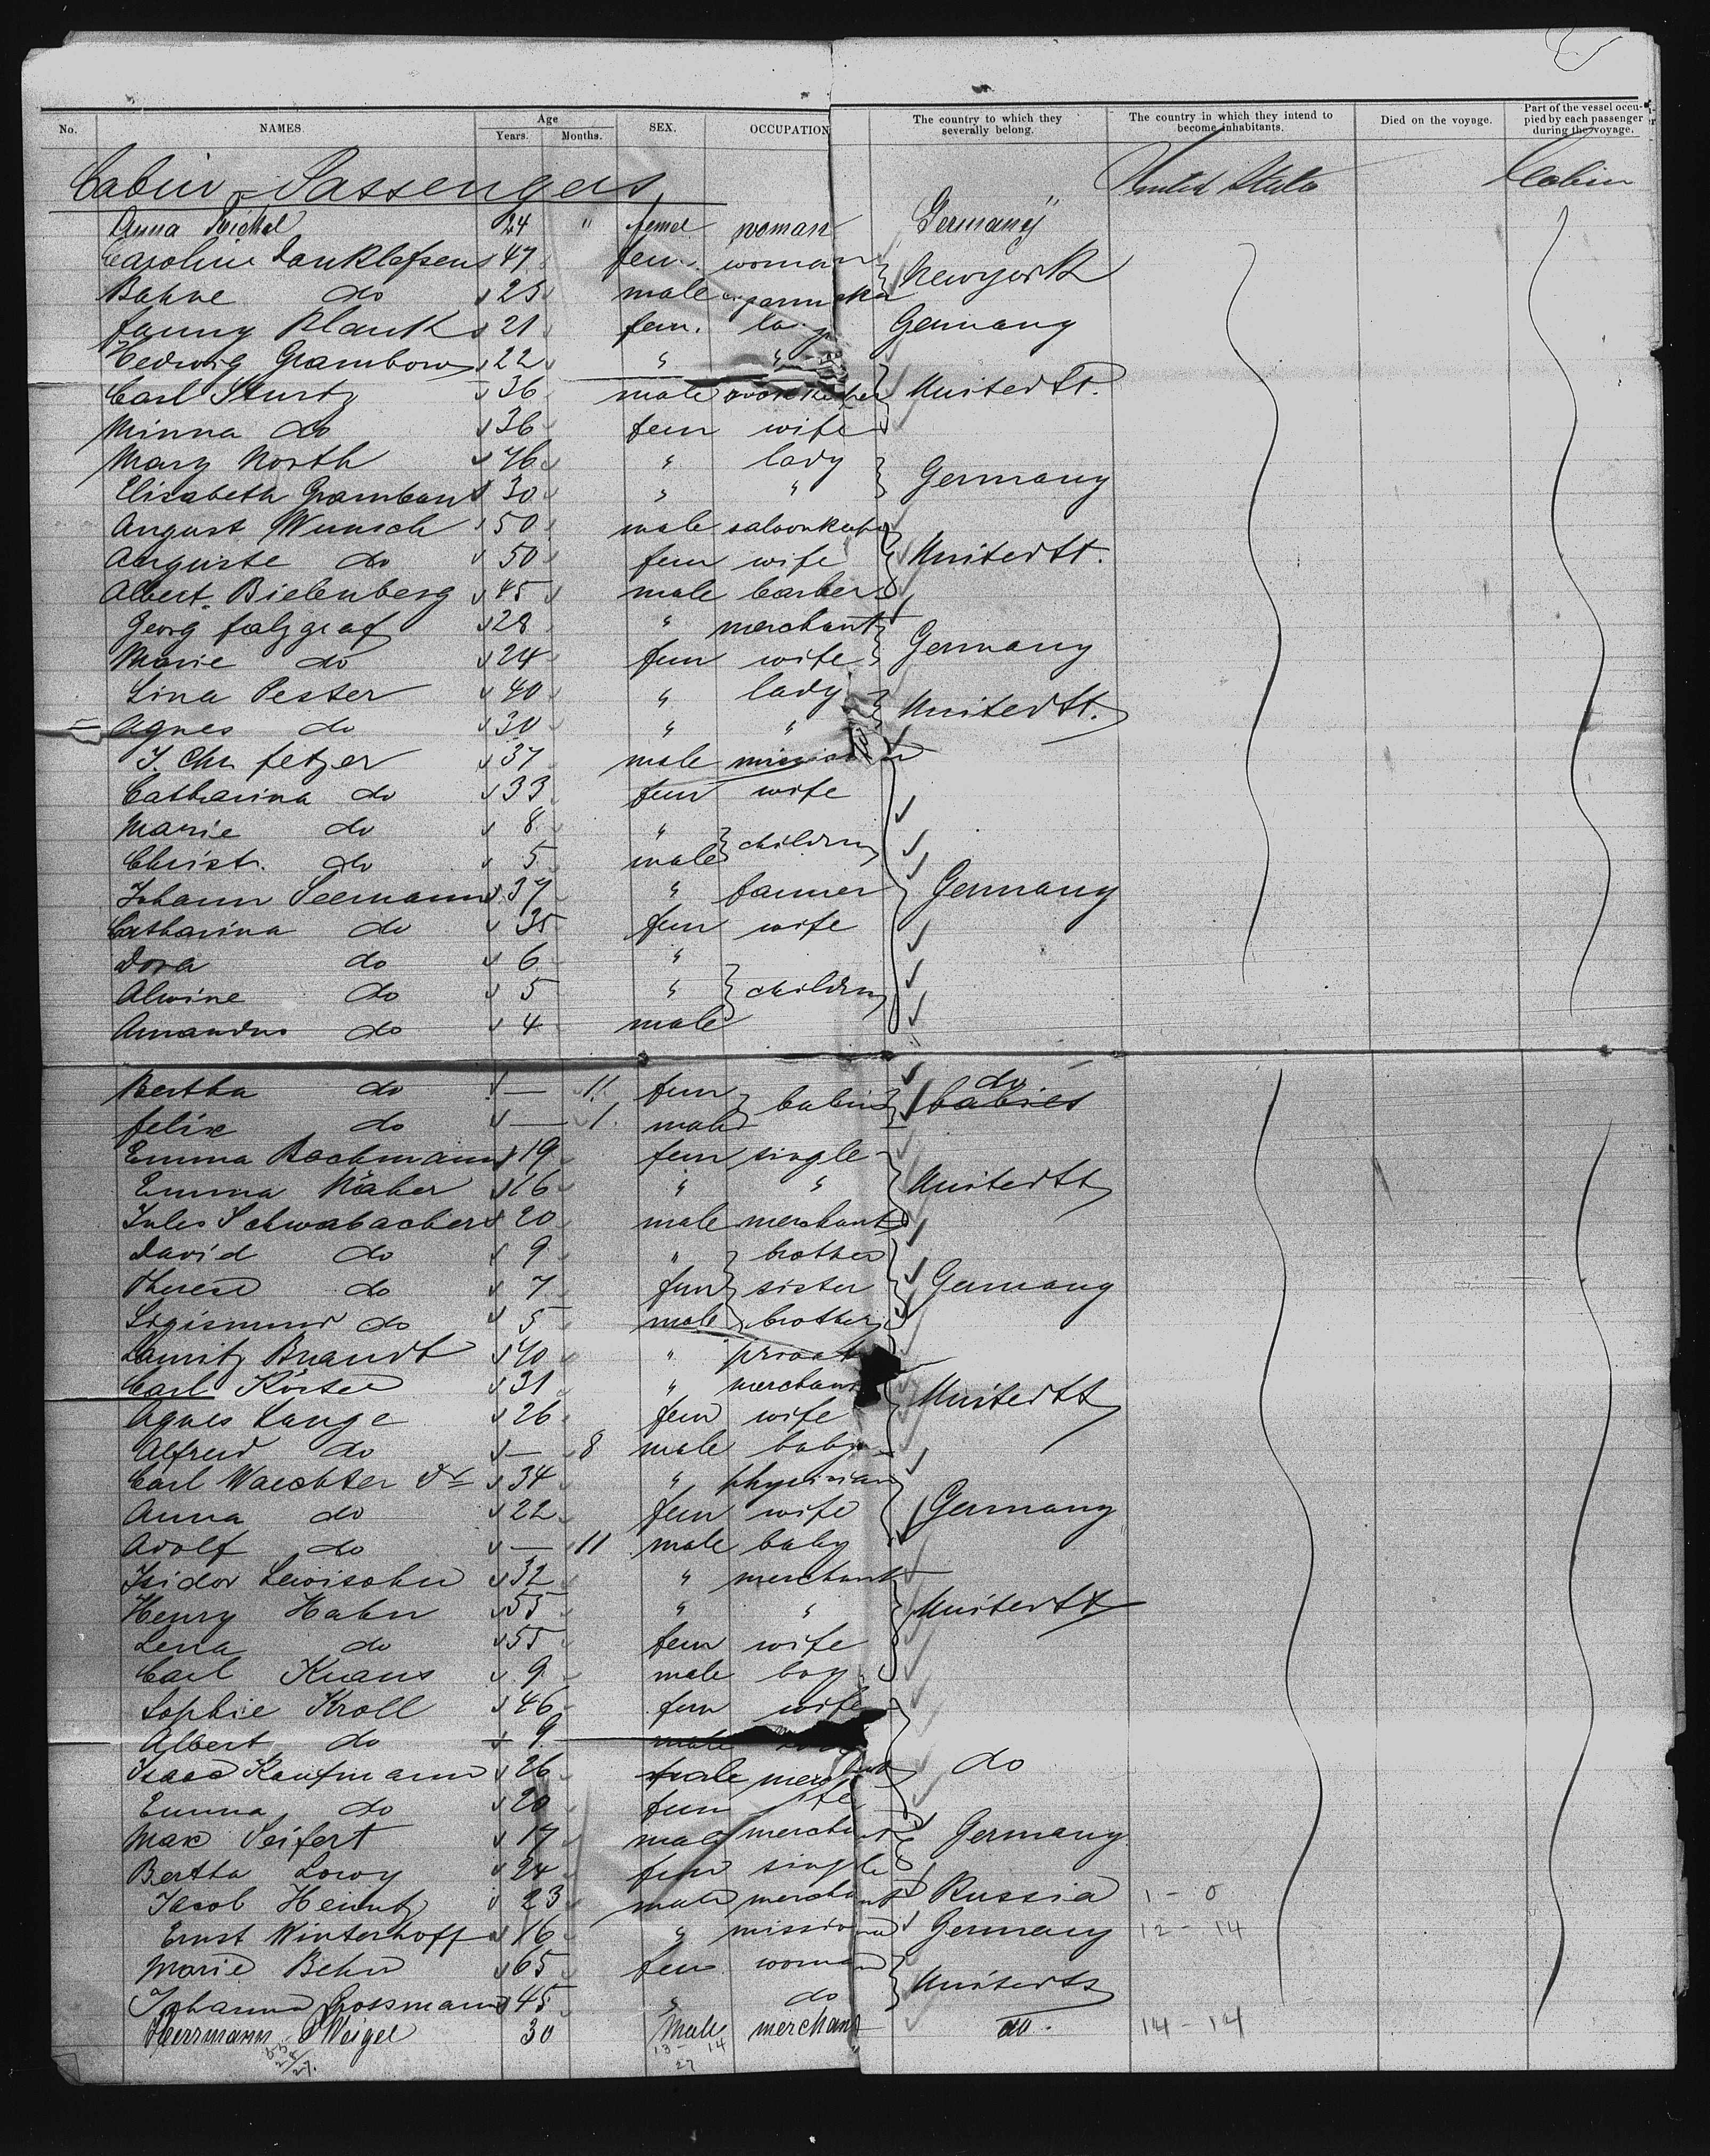 No. NAMES. Age Years. Months. SEX. OCCUPATION The country to which they severally belong. The country in which they intend to become inhabitants. Died on the voyage. Part of the vessel occupied by each passenger during the voyage.
Cabin-Passengers United States Cabin
Anna 24 " femel woman Germany
Caroline Danklefsen 47 fem. woman
Newyork
Bahne do 25 male
Fanny Blank 21 fem. lady Germany
Hedwig Grambow 22 " "
Carl Sturtz 36 male United St.
Minna do 36 fem wife
Mary North 46 " lady
Germany
Elisabeth 30 " "
August Wunsch 50 male saloonkeeper
Auguste do 50 fem wife United St.
Albert Bielenberg 45 male barber
Georg Falzgraf 28 " merchant
Germany
Marie do 24 fem wife
Lina Pester 40 " lady
United St.
Agnes do 30 " "
J. Chr Fetzer 37 male
Catharina do 33 fem wife
Marie do 8 "
children
Christ. do 5 male
Johann Seemann 37 " farmer Germany
Catharina do 35 fem wife
Dora do 6 "
Alwine do 5 " children
Amandus do 4 male
Bertha do — 11 fem
babies do babies
Felix do — 1 male
Emma Bachmann 19 fem single
Emma Näher 16 " " United St
Jules Schwabacher 20 male merchant
David do 9 " brother
Therese do 7 fem sister Germany
Sigismund do 5 male brother
Lauritz Brandt 40 "
Carl Köster 31 " merchant
United St
Agnes Lange 26 fem wife
Alfred do — 8 male baby
Carl Waechter Dr 34 " physician
Anna do 22 fem wife Germany
Adolf do — 11 male baby
Isidor Lewisohn 32 " merchant
Henry Hahn 55 " " United St
Lena do 55 fem wife
Carl Kraus 9 male boy
Sophie Kroll 46 fem wife
Albert do 9 male
Isaac Kaufmann 26 male merchant do
Emma do 20 fem wife
Max Seifert 17 male merchant Germany
Bertha Lowy 24 fem single
Jacob 23 male merchant Russia 1 - 0
Ernst Winterhoff 16 " Germany 12 - 14
Marie Behn 65 fem woman
United St
Johanna Grossmann 45 " do
Herrmann Weigel 30 Male merchant do. 14 - 14
13 - 14
27